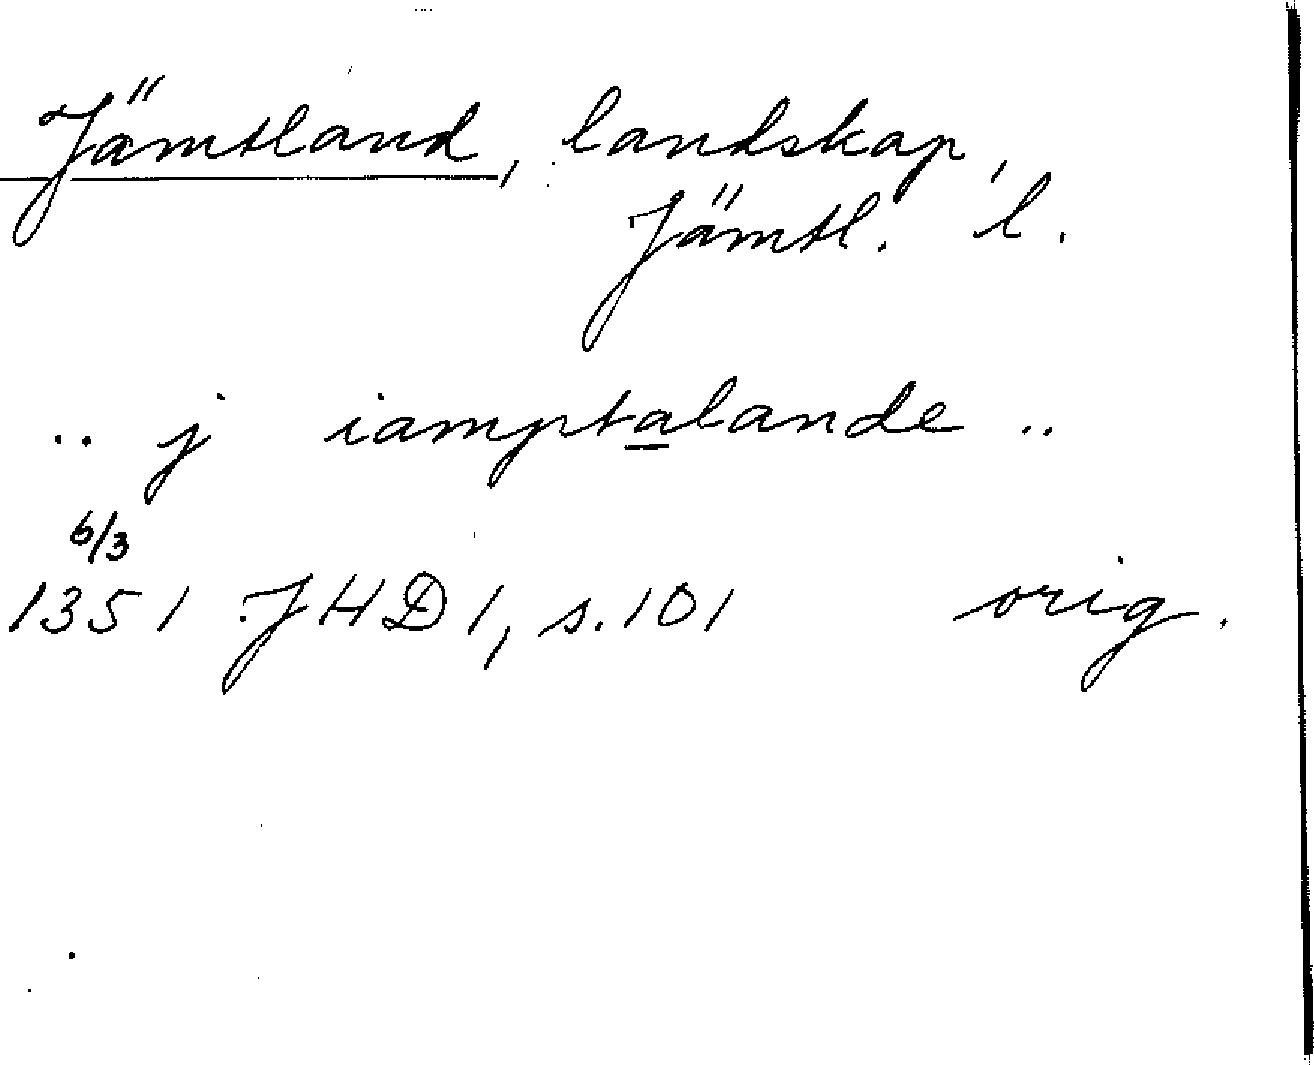 Jämtland, landskap,
Jämtl. l.
.. j iamptalande ..
6/3
1351 JHD 1, s. 101 orig.